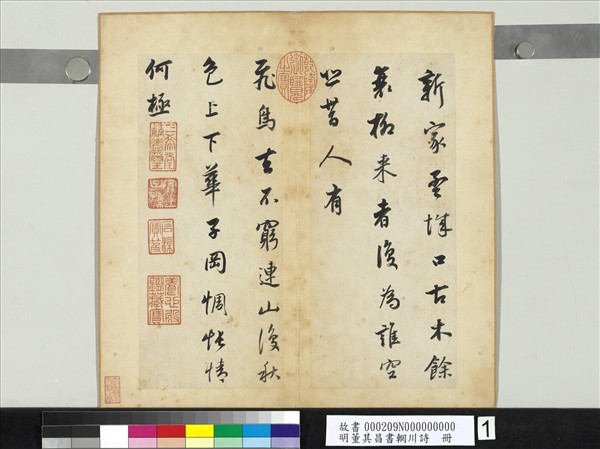 新家孟城口古木餘
衰柳来者復為誰空
悲昔人有
飛鳥去不窮連山復秋
色上下華子岡惆悵情
何極
故書 000209N000000000
明董其昌書輞川詩 冊
1